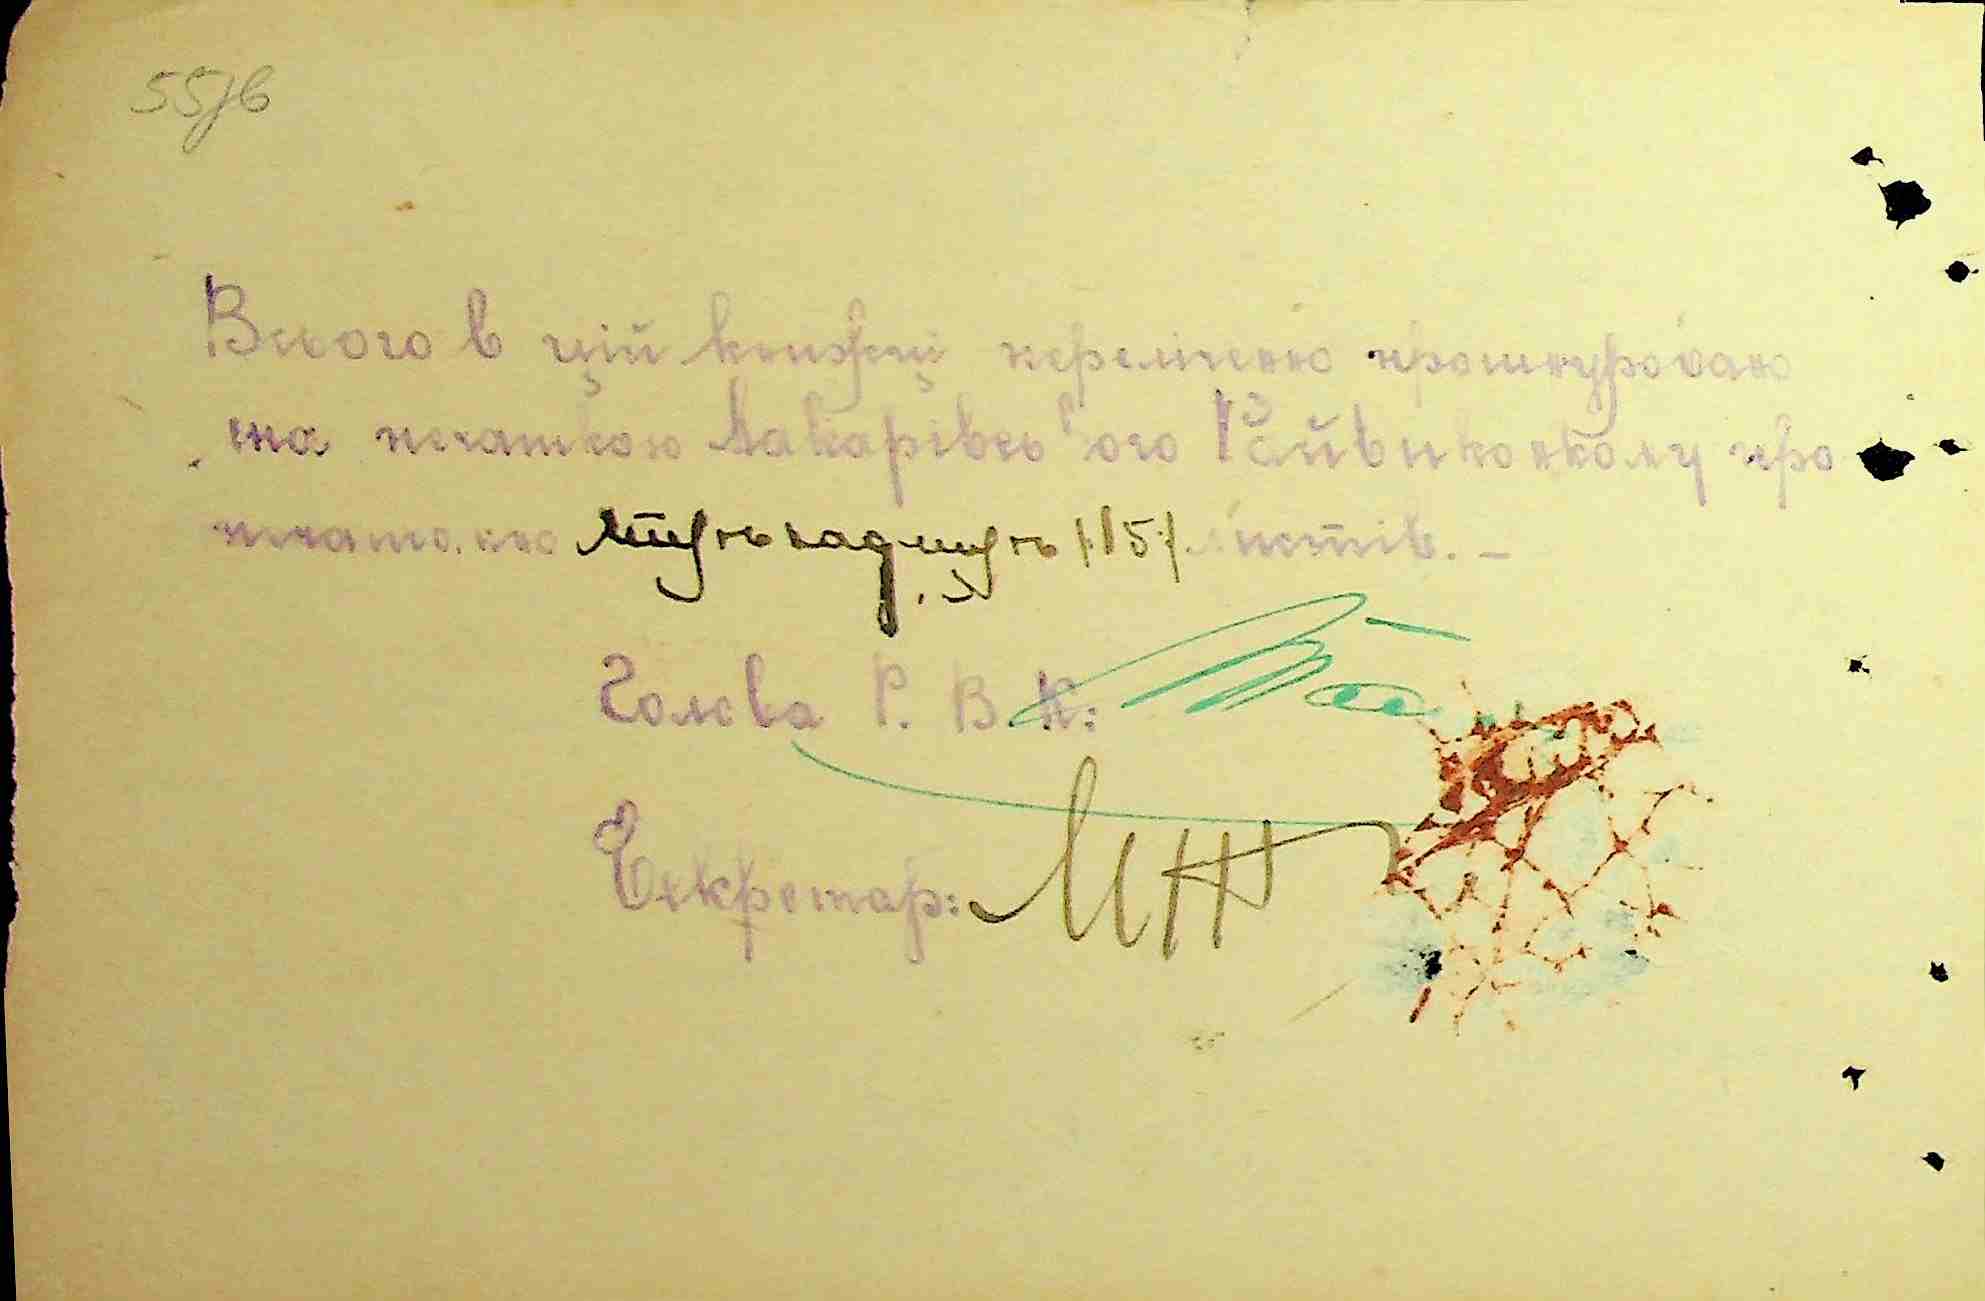 55зв
Всього в цій книжці перелічено прошнуровано
та печаткою Макарівсь'кого Райвиконкому про
печатано /15/ листів. –
Голова Р. В. К:
Секретар: